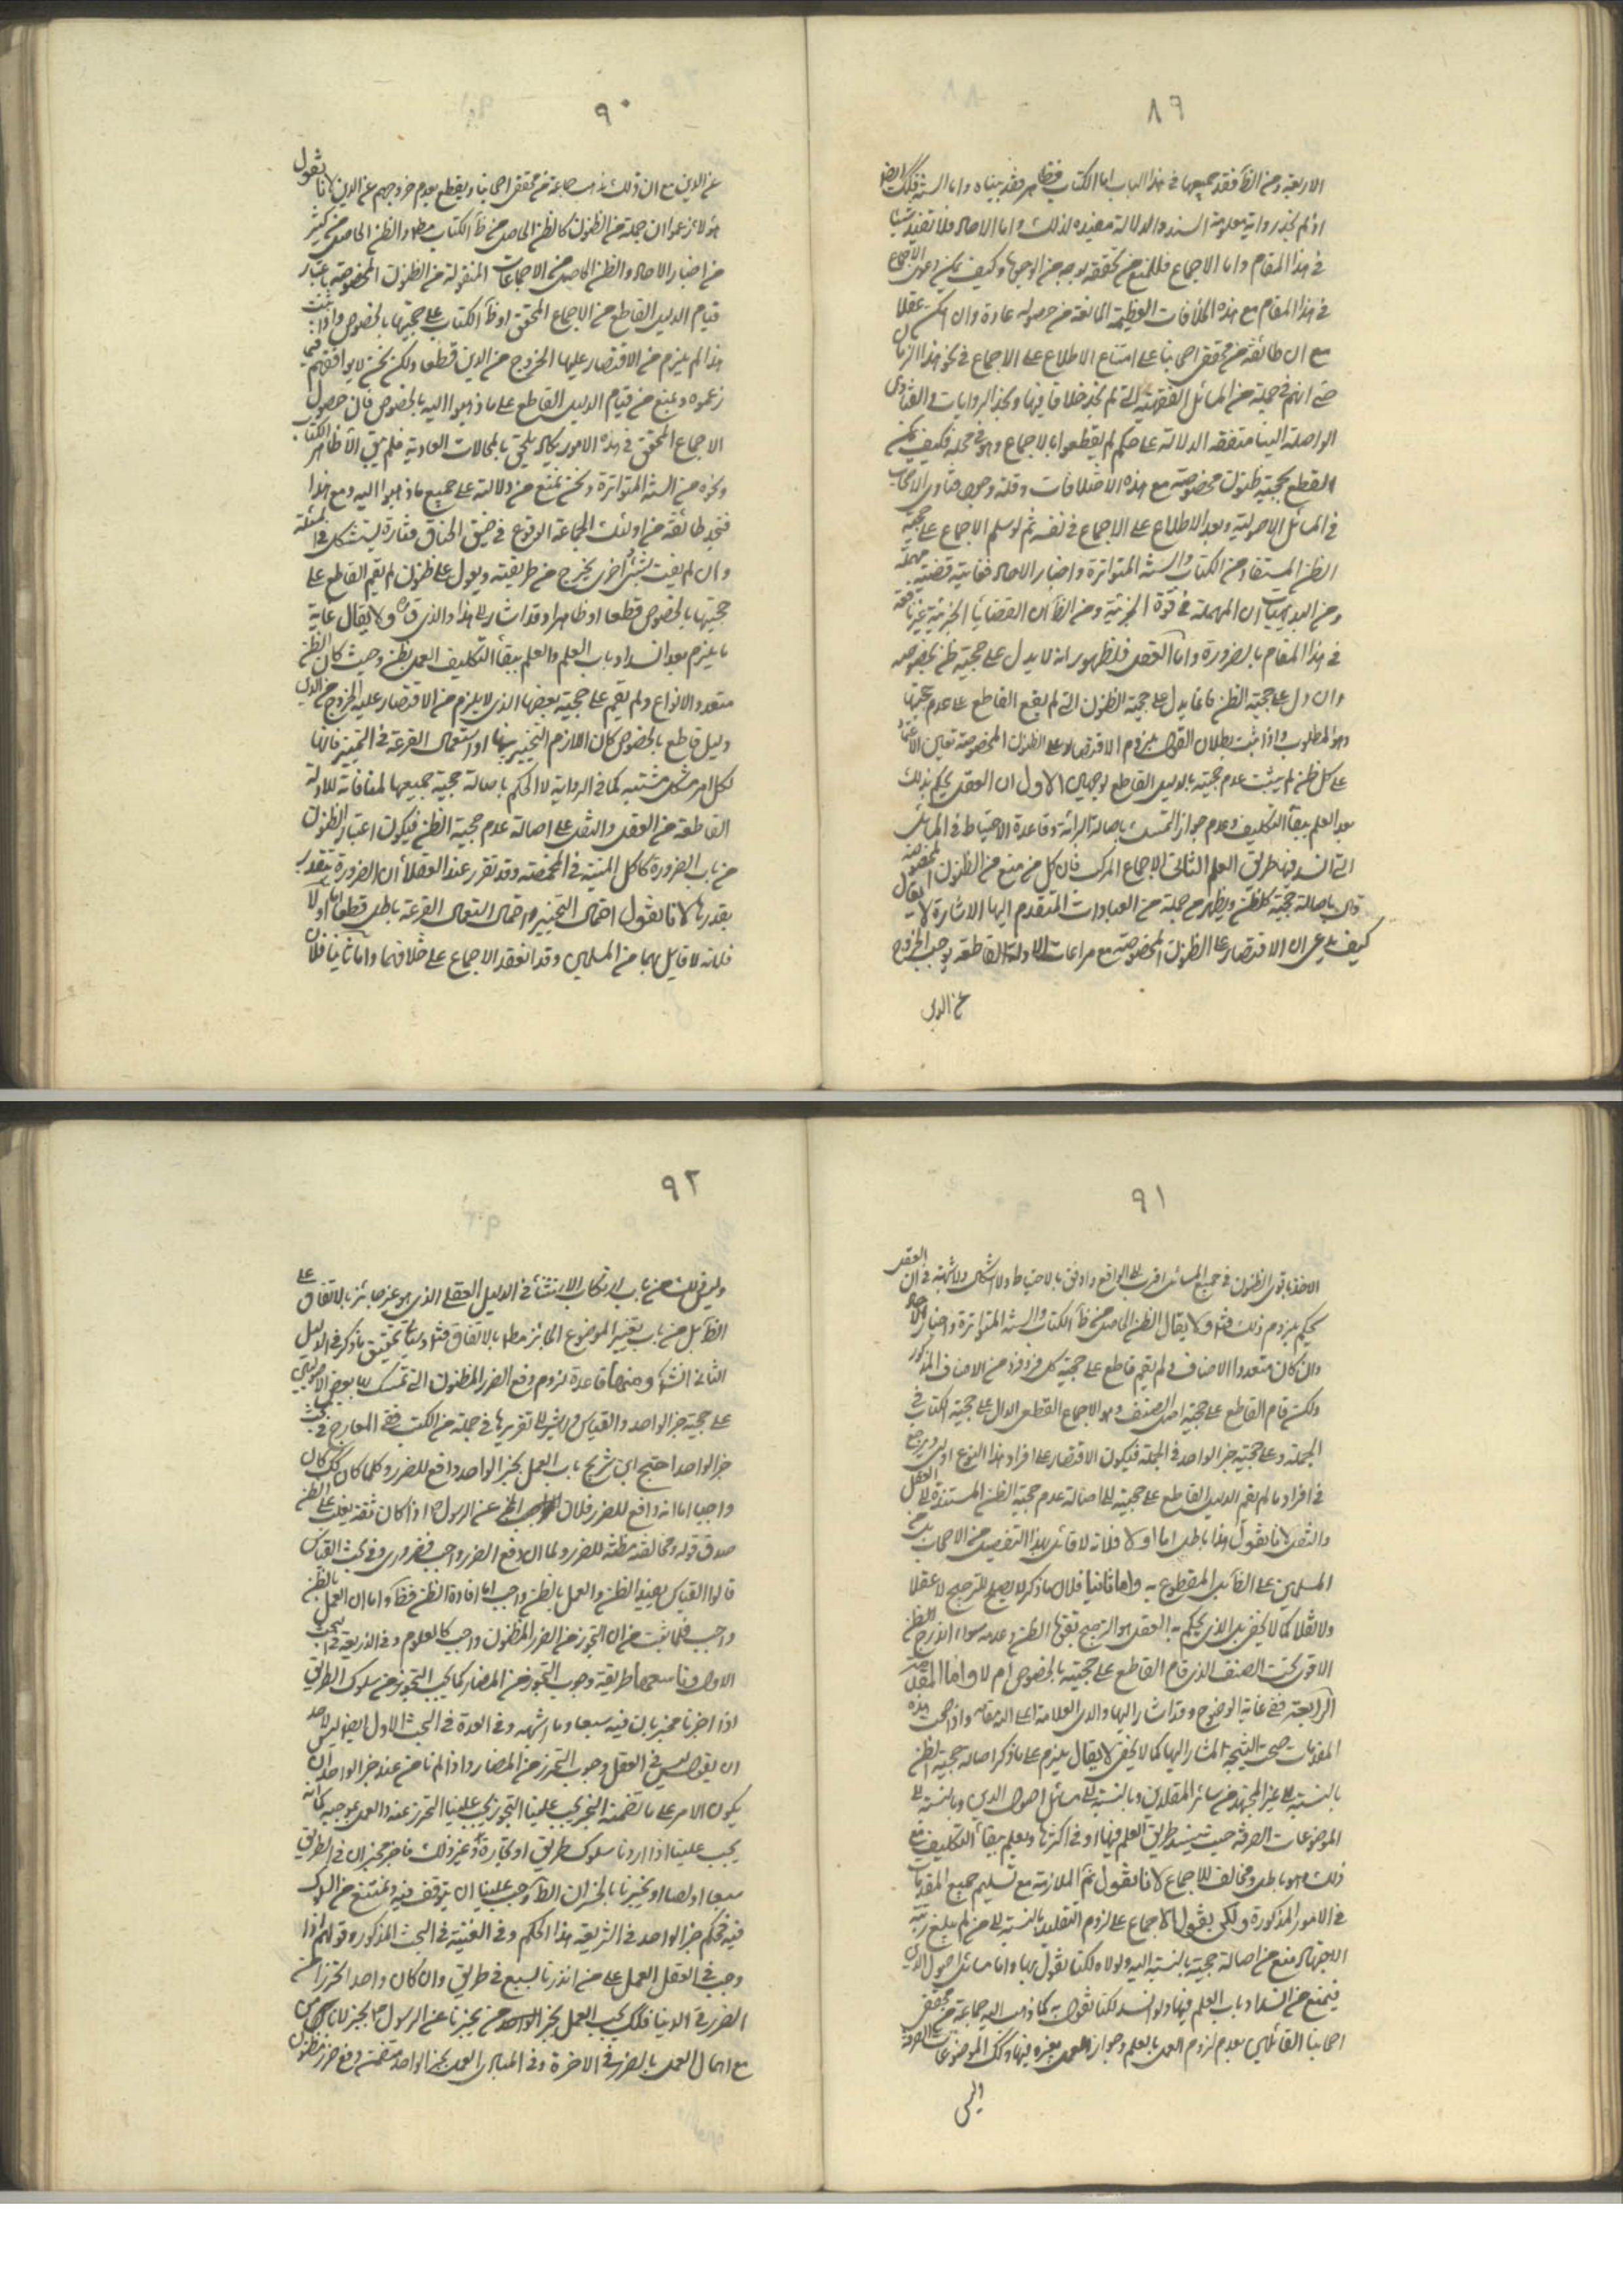 ٨٩
الاربعة ومن الظاهر فقد جميعها في هذا الباب اما الكتاب فظاهر وقد بيناه واما السنة فكك ايضا
اذ لم نجد رواية معلومة السند والدلالة مفيدة لذلك واما الاحاد فلا تفيد شيئا
في هذا المقام واما الاجماع فللمنع من تحققه بوجه من الوجوه وكيف يمكن دعوى الاجماع
في هذا المقام مع هذه الخلافات العظيمة المانعة من حصوله عادة وان امكن عقلا
مع ان طائفة من محققي اصحابنا على امتناع الاطلاع على الاجماع في نحو هذا الزمان
حتى انهم في جملة من المسائل الفقهية التي لم نجد خلافا فيها ونجد الروايات والفتاوى
الواصلة الينا متفقة الدلالة على حكم لم يقطعوا بالاجماع وهو في محله فكيف يمكن
القطع بحجية ظنون مخصوصة مع هذه الاختلافات وقلة وجود فتاوى الاصحاب
في المسائل الاصولية وبعد الاطلاع على الاجماع في نفسه ثم لو سلم الاجماع على حجية
الظن المستفاد من الكتاب والسنة المتواترة واخبار الاحاد فغايته قضية مهملة
ومن البديهيات ان المهملة في قوة الجزئية ومن الظاهر ان القضايا الجزئية غير نافعة
في هذا المقام بالضرورة واما العقل فلظهور انه لا يدل على حجية ظن بخصوصه
وان دل على حجية الظن فانما يدل على حجية الظنون التي لم يقم القاطع على عدم حجيتها
وهو المطلوب واذا ثبت بطلان القول بلزوم الاقتصار على الظنون المخصوصة تعين الاعتماد
على كل ظن لم يثبت عدم حجيته بالدليل القاطع لوجهين الاول ان العقل يحكم بذلك
بعد العلم ببقاء التكليف وعدم جواز التمسك باصالة البرائة وقاعدة الاحتياط في المسائل
التي انسد فيها طريق العلم الثاني الاجماع المركب فان كل من منع من الظنون المخصوصة
قال باصالة حجية كل ظن ويظهر من جملة من العبارات المتقدم اليها الاشارة لا يقال
كيف يدعى ان الاقتصار على الظنون المخصوصة مع مراعات الادلة القاطعة يوجب الخروج
عن الدين
٩٠
عن الدين مع ان ذلك مذهب جماعة من محققي اصحابنا ويقطع بعدم خروجهم عن الدين لانا نقول
هؤلاء زعموا ان جملة من الظنون كالظن الحاصل من ظاهر الكتاب مط والظن الحاصل من كثير
من اخبار الاحاد والظن الحاصل من الاجماعات المنقولة من الظنون المخصوصة باعتبار
قيام الدليل القاطع من الاجماع المحقق او ظاهر الكتاب على حجيتها بالخصوص واذا ثبت
هذا لم يلزم من الاقتصار عليها الخروج من الدين قطعا ولكن نحن لا نوافقهم فيما
زعموه ونمنع من قيام الدليل القاطع على ما ذهبوا اليه بالخصوص فان حصول
الاجماع المحقق في هذه الامور يكاد يلحق بالمحالات العادية فلم يبق الا ظاهر الكتاب
ونحوه من السنة المتواترة ونحن نمنع من دلالته على جميع ما ذهبوا اليه ومع هذا
فنجد طائفة من اولئك الجماعة الوقوع في ضيق الخناق فتارة يستشكل في المسئلة
وان لم يفت بشئ واخرى يخرج من طريقته ويعول على ظنون لم يقم القاطع على
حجيتها بالخصوص قطعا او ظاهرا وقد اشار الى هذا والدي قده ولا يقال غاية
ما يلزم بعد انسداد باب العلم والعلم ببقاء التكليف العمل بظن وحيث كان الظن
متعدد الانواع ولم يقم على حجية بعضها الذي لا يلزم من الاقتصار عليه الخروج من الدين
دليل قاطع بالخصوص كان اللازم التخيير بينها او استعمال القرعة في التعيين فانها
لكل امر مشكل مشتبه كما في الرواية لا الحكم باصالة حجية جميعها لمنافاته للادلة
القاطعة من العقل والنقل على اصالة عدم حجية الظن فيكون اعتبار الظنون
من باب الضرورة كاكل الميتة في المخمصة وقد تقرر عند العقلاء ان الضرورة تتقدر
بقدرها لانا نقول احتمال التخيير واحتمال استعمال القرعة باطل قطعا اما اولا
فلانه لا قايل بهما من المسلمين وقد انعقد الاجماع على خلافهما واما ثانيا فلان
٩١
الاخذ باقوى الظنون في جميع المسائل اقرب الى الواقع واوفق بالاحتياط ولا اشكال ولا شبهة في ان العقل
يحكم بلزوم ذلك فتأمل ولا يقال الظن الحاصل من ظاهر الكتاب والسنة المتواترة واخبار الاحاد
وان كان متعدد الاصناف ولم يقم قاطع على حجية كل فرد فرد من الاصناف المذكور
ولكن قام القاطع على حجية اصل الصنف وهو الاجماع القطعي الدال على حجية الكتاب في
الجملة وعلى حجية خبر الواحد في الجملة فيكون الاقتصار على افراد هذا النوع اولى ويرجع
في افراد ما لم يقم الدليل القاطع على حجيته الى اصالة عدم حجية الظن المستندة الى العقل
والنقل لانا نقول هذا باطل اما اولا فلانه لا قائل بهذا التفصيل من الاصحاب بل من
المسلمين على الظاهر بل المقطوع به واما ثانيا فلان ما ذكر لا يصلح للترجيح لا عقلا
ولا نقلا كما لا يخفى بل الذي يحكم به العقل هو الترجيح بقوة الظن وعدمه سواء اندرج الظن
الاقوى تحت الصنف الذي قام القاطع على حجيته بالخصوص ام لا واما المقدمة
الرابعة ففي غاية الوضوح وقد اشار اليها والدي العلامة اعلى الله مقامه واذا صحت هذه
المقدمات صحت النتيجة المشار اليها كما لا يخفى لا يقال يلزم على ما ذكر اصالة حجية الظن
بالنسبة الى غير المجتهد من سائر المقلدين وبالنسبة الى مسائل اصول الدين وبالنسبة الى
الموضوعات الصرفة حيث ينسد طريق العلم فيها او في اكثرها ويعلم ببقاء التكليف مع
ذلك وهو باطل ومخالف للاجماع لانا نقول نمنع الملازمة مع تسليم جميع المقدمات
في الامور المذكورة ولكن نقول الاجماع على لزوم التقليد بالنسبة الى من لم يبلغ رتبة
الاجتهاد منع من اصالة حجيته بالنسبة اليه ولولاه لكنا نقول بها واما مسائل اصول الدين
فنمنع من انسداد باب العلم فيها ولو انسد لكنا نقول به كما ذهب اليه جماعة من محققي
اصحابنا القائلين بعدم لزوم العمل بالعلم وجواز العمل بغيره فيها وكك الموضوعات الصرفة
وليس
٩٢
وليس ذلك من باب ارتكاب الاستثناء في الدليل العقلي الذي هو غير جائز بالاتفاق على
الظاهر بل من باب تغيير الموضوع الجائز مطلقا بالاتفاق فتأمل وسيأتي تحقيق ما ذكر في الدليل
الثاني انشاء الله ومنها قاعدة لزوم دفع الضرر المظنون التي تمسك بها بعض الاصوليين
على حجية خبر الواحد والقياس واشير الى تقريرها في جملة من الكتب ففي المعارج في بحث
خبر الواحد احتج ابن شريح باب العمل بخبر الواحد دافع للضرر وكلما كان كك كان
واجبا اما انه دافع للضرر فلان المخبر عن الرسول ص اذا كان ثقة يغلب على الظن
صدق قوله ومخالفته مظنة للضرر ولما ان دفع الضرر واجب فضروري وفي بحث القياس
قالوا القياس يفيد الظن والعمل بالظن واجب اما افادة الظن فظاهر واما ان العمل بالظن
واجب فلما ثبت من ان التحرز من الضرر المظنون واجب كالمعلوم وفي الذريعة في بحث
الاول وتاسعها طريقة وجوب التحرز من المضار كما يجب التحرز من سلوك الطريق
اذا اخبرنا مخبر بان فيه سبعا وما اشبهه وفي العدة في البحث الاول ايضا ليس لاحد
ان يقول ليس في العقل وجوب التحرز من المضار واذا لم نامن عند خبر الواحد ان
يكون الامر على ما تضمنه الخبر يجب علينا التحرز يجب علينا التحرز عنه والعمل بموجبه كما انه
يجب علينا اذا اردنا سلوك طريق او تجارة وغير ذلك فاخبر مخبر ان في الطريق
سبعا او لصا او يخبرنا بالخسران الظاهر وجب علينا ان نتوقف فيه ونمتنع من السلوك
فيه فحكم خبر الواحد في الشريعة هذا الحكم وفي الغنية في البحث المذكور وقولهم اذا
وجب في العقل العمل على من انذرنا بسبع في طريق وان كان واحدا تحرزا من
الضرر في الدنيا فكك يجب العمل بخبر الواحد من يخبرنا عن الرسول ص بخبر لانا لا نامن
مع اهمال العمل به الضرر في الاخرة وفي المبادي العمل بخبر الواحد متضمن دفع ضرر مظنون